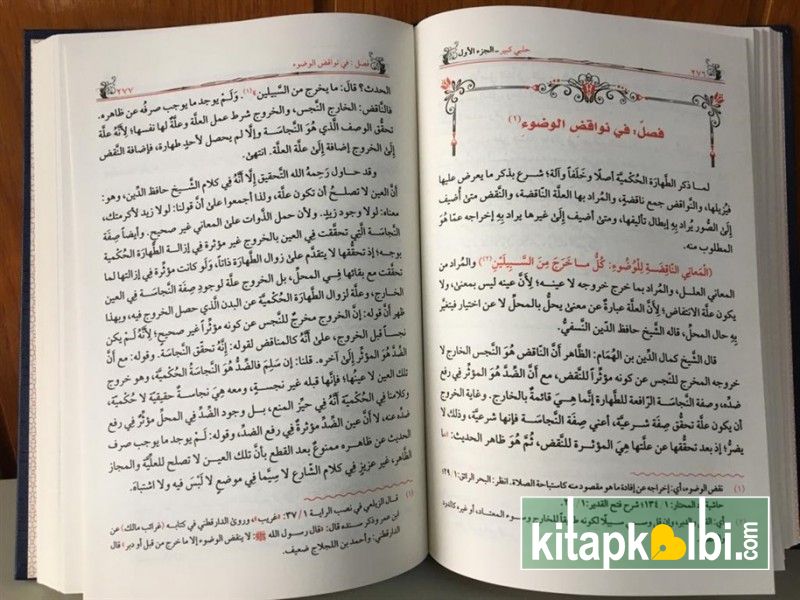 حلبي كبير - الجزء الأول
٢٧٦
فصل: في نواقض الوضوء (١)
لما ذكر الطهارة الحكمية أصلاً وخلفاً وآلة؛ شرع بذكر ما يعرض عليها
فيزيلها، والنواقض جمع ناقضة، والمراد بها العلة الناقضة، والنقض متى أضيف
إلى الصور يُراد به إبطال تأليفها، ومتى أضيف إلى غيرها يراد به إخراجه عمّا هو
المطلوب منه.
(المَعَاني النَاقِضَة لِلْوُضُوءِ: كُلُّ ما خَرَجَ مِنَ السَّبِيلَيْنِ (٢)) والمراد من
المعاني العلل، والمراد بما خرج خروجه لا عينه؛ لأنَّ عينه ليس بمعنىً، ولا
يكون علّة الانتقاض؛ لأنَّ العلّة عبارةٌ عن معنىً يحلّ بالمحلّ لا عن اختيار فيتغيّر
به حال المحلّ، قاله الشيخ حافظ الدّين النّسفيُّ.
قال الشيخ كمال الدّين بن الهُمَام: الظّاهر أنَّ النّاقض هُوَ النّجس الخارج لا
خروجه المخرج للنّجس عن كونه مؤثّراً للنّقض، مع أنَّ الضّدّ هُوَ المؤثر في رفع
ضدّه، وصفة النّجاسة الرّافعة للطّهارة إنّما هِيَ قائمةٌ بالخارج. وغاية الخروج
أن يكون علّة تحقّق صفة شرعيّة، أعني صِفَة النّجاسَة فإنها شرعيّة، وذلك لا
يضرّ؛ إذ بعد تحقّقها عن علّتها هِيَ المؤثرة للنّقض، ثُمَّ هُوَ ظاهر الحديث: «ما
(١) نقض الوضوء، أي: إخراجه عن إفادة ما هو مقصود منه كاستباحة الصلاة. انظر: البحر الرائق: ١/ ٢٩؛
فصل: في نواقض الوضوء
٢٧٧
الحدث؟ قالَ: ما يخرج من السَّبيلين» (١). وَلَمْ يوجد ما يوجب صرفُه عن ظاهره.
فالنّاقض: الخارج النّجس، والخروج شرط عمل العلّة وعلّةٌ لها نفسها؛ لأنّه علّة
تحقّق الوصف الّذي هُوَ النّجاسة وإلّا لم يحصل لأحدٍ طهارة، فإضافة النّقض
إلَى الخروج إضافة إلَى علّة العلّة. انتهىٰ.
وقد حاول رَحِمهُ الله التّحقيق إلّا أنّهُ في كلام الشّيخ حافظ الدّين، وهو:
أنَّ العين لا تصلُحُ أن تكون علّة، ولذا أجمعوا علىٰ أنَّ قولنا: لولا زيد لأكرمتك،
معناه: لولا وجود زيد. ولأن حمل الذّوات علىٰ المعاني غير صحيح. وأيضاً صِفَة
النّجاسَة الّتي تحقّقت في العين بالخروج غير مؤثرة في إزالة الطّهارة الحكمية
بوجهٍ؛ إذ تحقّقها لا يتقدّم علىٰ زوال الطّهارة ذاتاً، وَلَو كانت مؤثرة في إزالتها لما
تحقّقت مع بقائها في المحلّ، بل الخروج علّة لوجودِ صِفَة النّجاسَة في العين
الخارج، وعلّة لزوال الطّهارة الحكميّة عن البدن الّذي حصل الخروج فيه، وبهذا
ظهر أن قوله: إنَّ الخروج مخرج للنّجس عن كونه مؤثراً غير صحيح؛ لأنّهُ لم يكن
نجساً قبل الخروج، علىٰ أنّهُ كالمناقض لقوله: إنّهُ تحقّق النّجاسة. وقوله: مع أنَّ
الضّدَّ هُوَ المؤثر إلىٰ آخره. قلنا: إن سَلِمَ فالضّدّ هُوَ النّجاسَةُ الحُكميّة، وهو خروج
تلك العين لا عينُها؛ فإنّها قبله غير نجسةٍ، ومعه هِيَ نجاسة حقيقية لا حُكميّة،
وكلامنا في الحُكميّة أنّهُ في حيّز المنع، بل وجود الضّدّ في المحلّ مؤثرٌ في رفع
ضدّه عنه، لا أنَّ عين الضّدّ مؤثرةٌ في رفع الضّد، وقوله: لَمْ يوجد ما يوجب صرف
الحديث عن ظاهره ممنوعٌ بعد القطع بأنَّ تلك العين لا تصلح للعلّيّة والمجاز
الظّاهر، غير عزيزٍ في كلام الشّارع لا سيّما في موضع لا لَبْسَ فيه ولا اشتباه.
(١) قال الزيلعي في نصب الراية ١ / ٣٧: «غريب» وروىٰ الدارقطني في كتابه «غرائب مالك» عن
ابن عمر وذكر سنده قال: «قال رسول الله ﷺ: لا ينقض الوضوء إلا ما خرج من قبل أو دبر» قال
الدارقطني: وأحمد بن اللجلاج ضعيف.
kitapkalbi.com